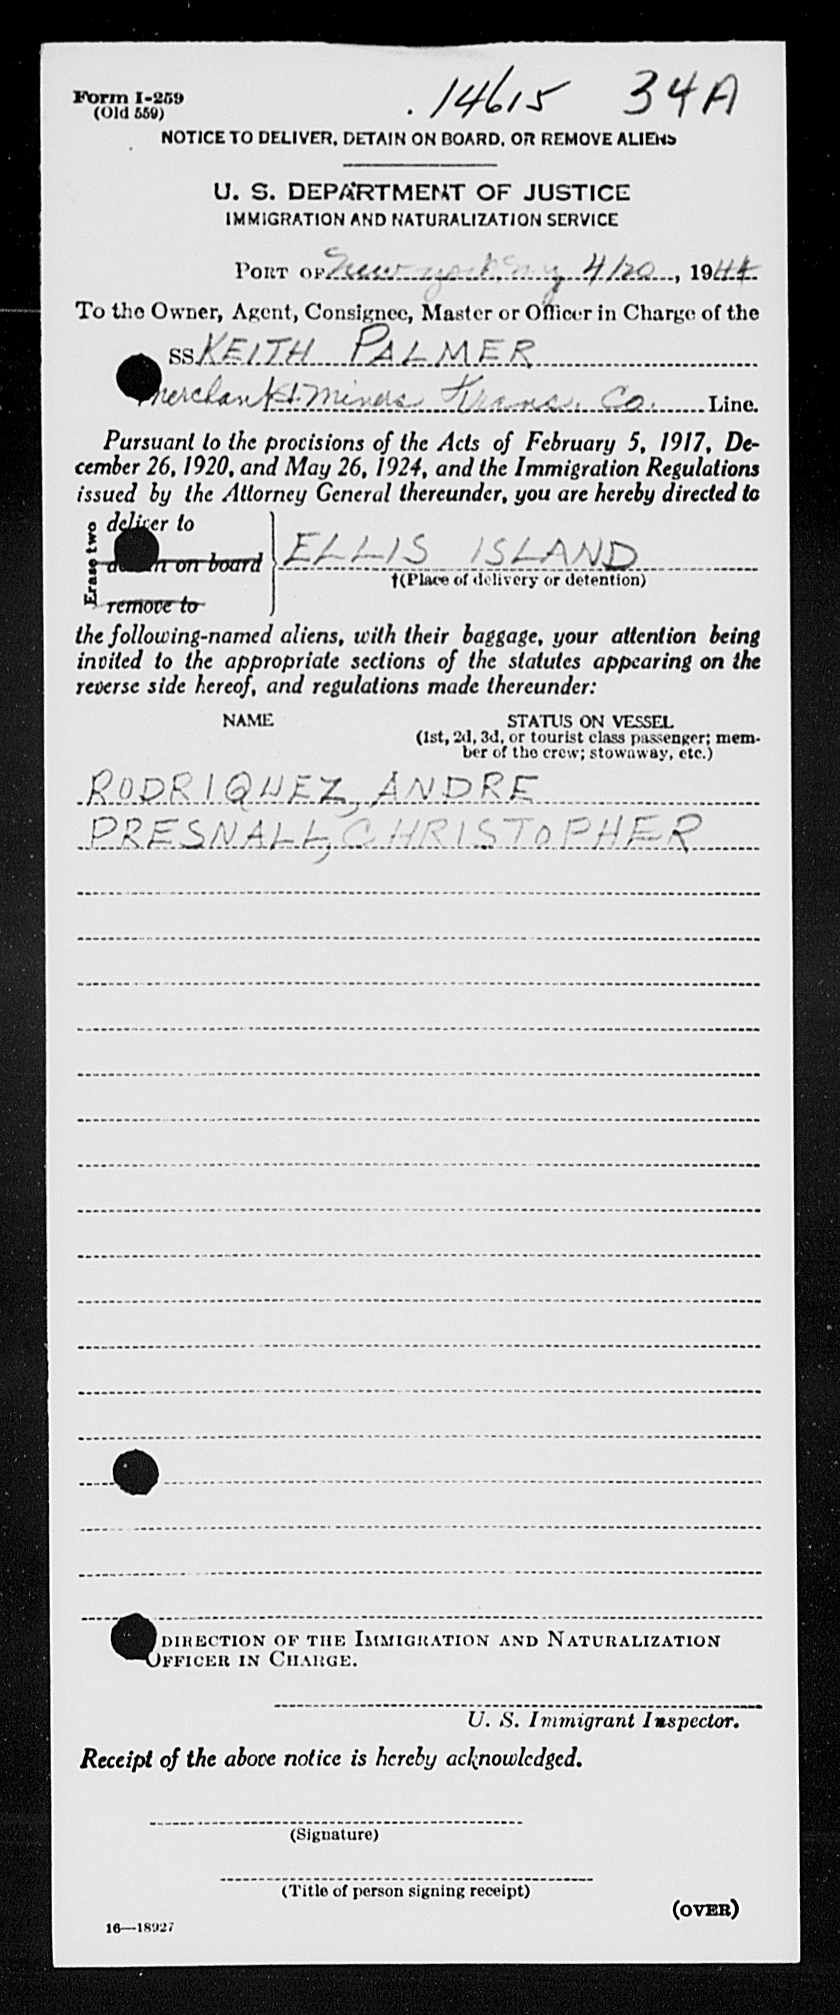 Form I-259
(Old 559)
14615 34A
NOTICE TO DELIVER, DETAIN ON BOARD, OR REMOVE ALIENS
U. S. DEPARTMENT OF JUSTICE
IMMIGRATION AND NATURALIZATION SERVICE
PORT OF New York, NY 4/20, 1944
To the Owner, Agent, Consignee, Master or Officer in Charge of the
SS KEITH PALMER
Merchant & Miners Trans. Co. Line.
Pursuant to the provisions of the Acts of February 5, 1917, De-
cember 26, 1920, and May 26, 1924, and the Immigration Regulations
issued by the Attorney General thereunder, you are hereby directed to
Erase two
deliver to
detain on board
remove to
ELLIS ISLAND
†(Place of delivery or detention)
the following-named aliens, with their baggage, your attention being
invited to the appropriate sections of the statutes appearing on the
reverse side hereof, and regulations made thereunder:
NAME STATUS ON VESSEL
(1st, 2d, 3d, or tourist class passenger; mem-
ber of the crew; stowaway, etc.)
RODRIQUEZ, ANDRE
PRESNALL, CHRISTOPHER
DIRECTION OF THE IMMIGRATION AND NATURALIZATION
OFFICER IN CHARGE.
U. S. Immigrant Inspector.
Receipt of the above notice is hereby acknowledged.
(Signature)
(Title of person signing receipt)
(OVER)
16—18927